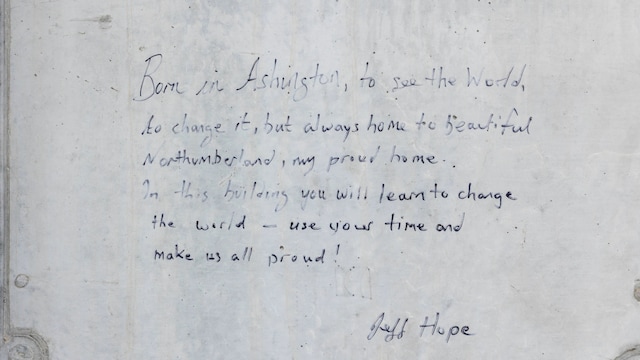 Born in Ashington, to see the World,
to change it, but always home to beautiful
Northumberland, my proud home.
In this building you will learn to change
the world – use your time and
make us all proud!
Jeff Hope